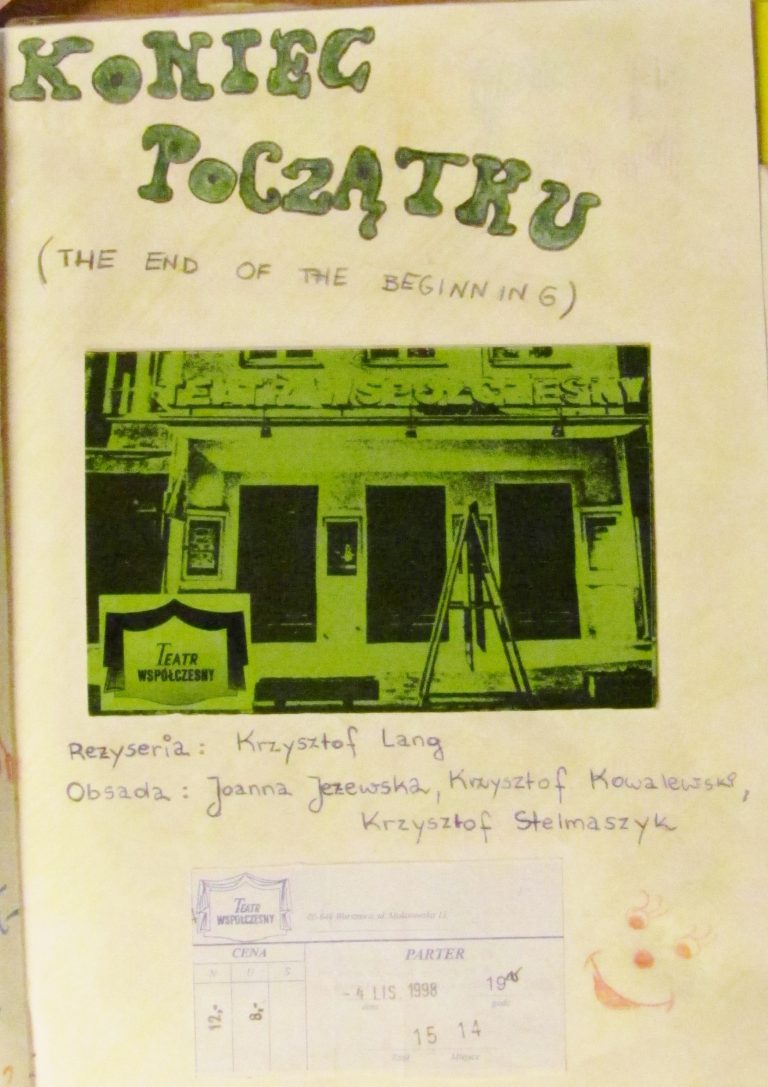 KONIEC
POCZĄTKU
(THE END OF THE BEGINNING)
TEATR WSPÓŁCZESNY
TEATR
WSPÓŁCZESNY
Reżyseria: Krzysztof Lang
Obsada: Joanna Jeżewska, Krzysztof Kowalewski,
Krzysztof Stelmaszyk
TEATR
WSPÓŁCZESNY
00-640 Warszawa, ul. Mokotowska 13
CENA PARTER
N U S
12,- 8,-
- 4 LIS. 1998 19
data godz.
15 14
Rząd Miejsce